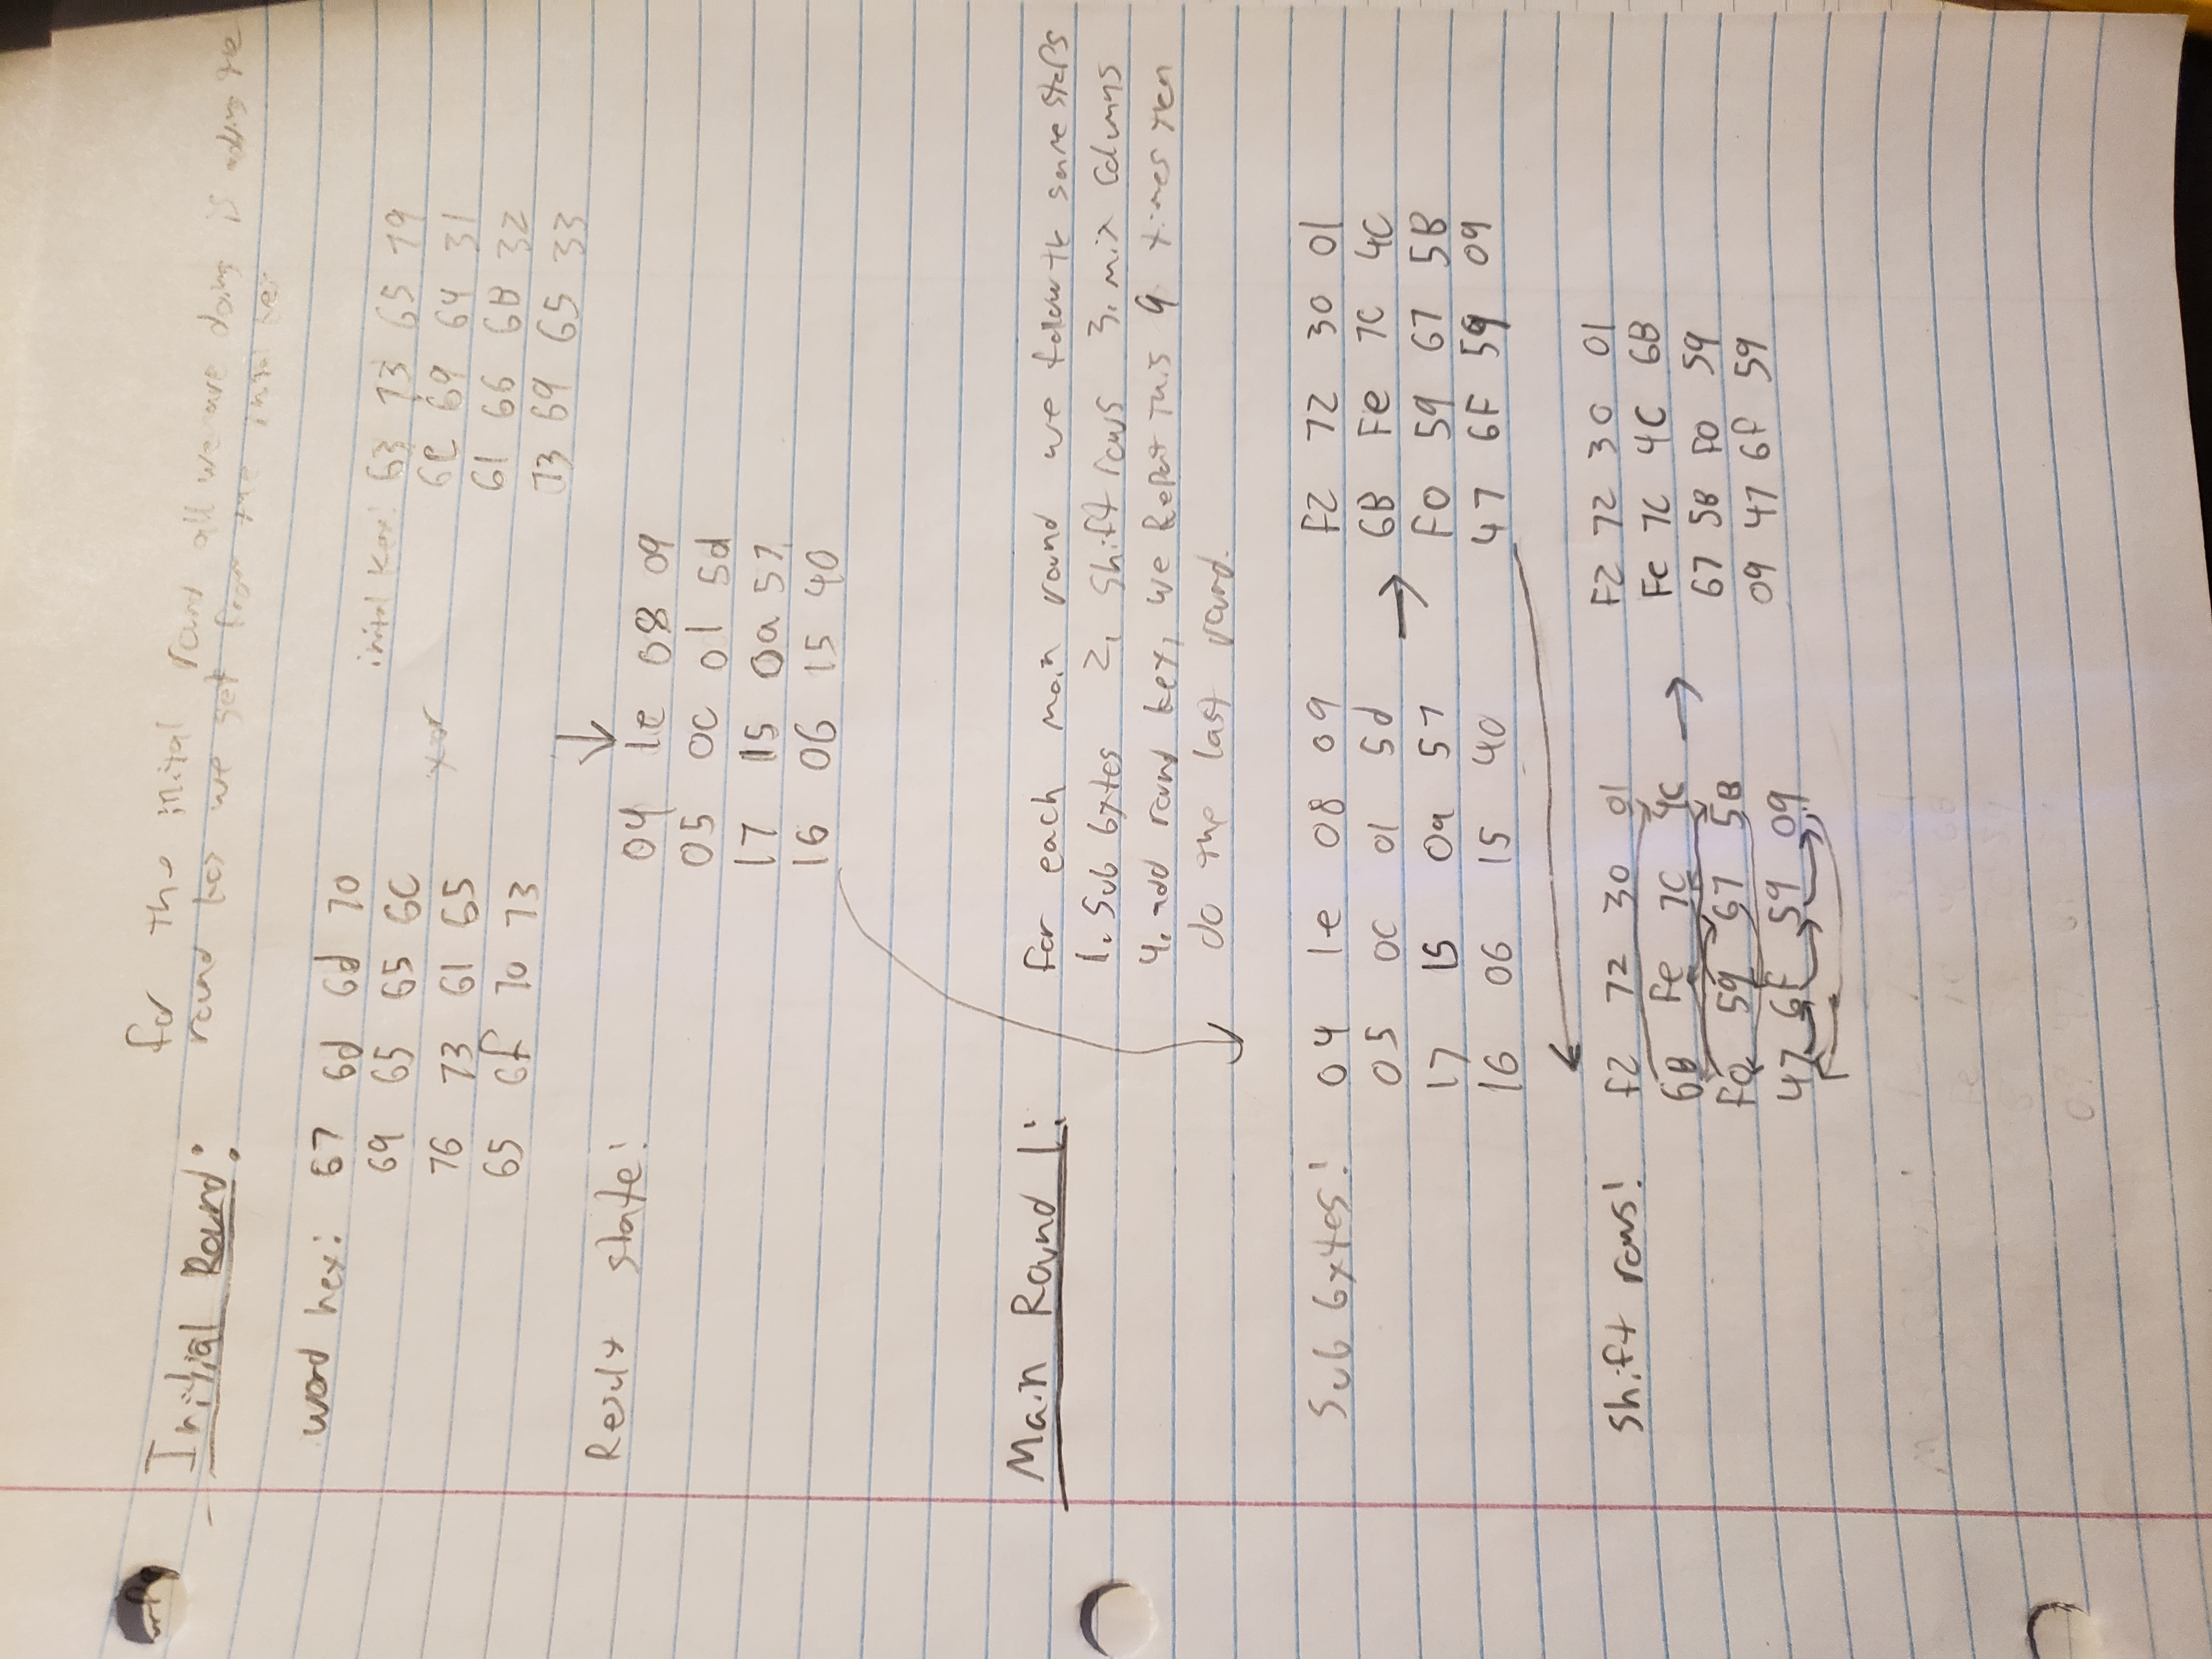 Initial Round:
for the inital round all we are doing is adding the
round key we get from the inital key
word hex: 67 6d 6d 70
69 65 65 6C
76 73 61 65
65 6f 70 73
xor
inital key: 63 73 65 79
6C 69 64 31
61 66 6B 32
73 69 65 33
Result state:
04 1e 08 09
05 0C 01 5d
17 15 0a 57
16 06 15 40
Main Round 1:
for each main round we follow the same steps
1. Sub bytes 2. shift rows 3. mix columns
4. add round key, we Repeat this 9 times then
do the last round.
Sub bytes: 04 1e 08 09 → F2 72 30 01
05 0C 01 5d 6B Fe 7C 4C
17 15 0a 57 F0 59 67 5B
16 06 15 40 47 6F 59 09
Shift rows: f2 72 30 01 → F2 72 30 01
6B Fe 7C 4C Fe 7C 4C 6B
F0 59 67 5B 67 5B F0 59
47 6F 59 09 09 47 6F 59